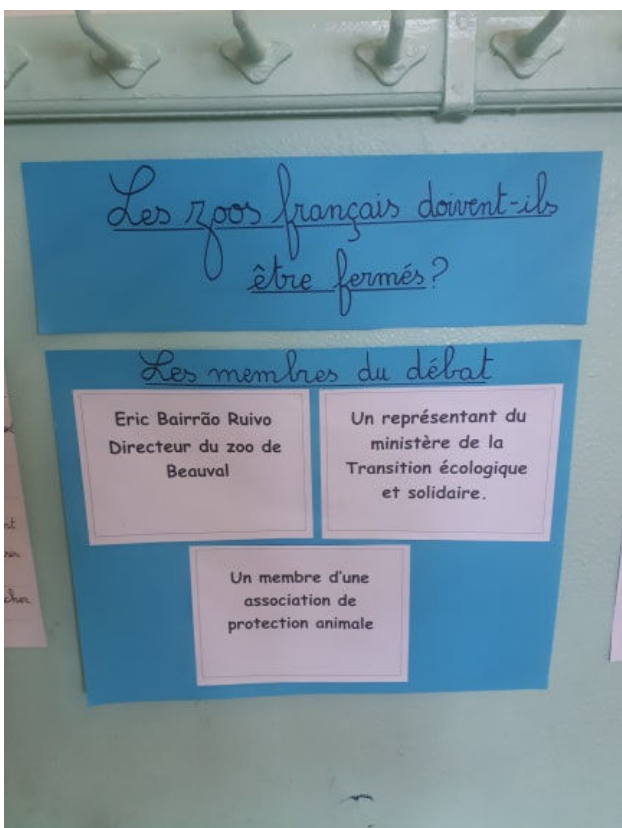 Les zoos français doivent-ils
être fermés ?
Les membres du débat
Eric Bairrão Ruivo
Directeur du zoo de
Beauval
Un représentant du
ministère de la
Transition écologique
et solidaire.
Un membre d'une
association de
protection animale